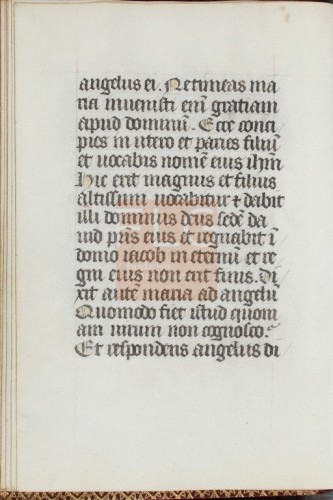 angelus ei. Ne timeas ma
ria invenisti enī gratiam
apud dominū. Ecce conci
pies in utero et paries filiū
et vocabis nomē eius ihm̄
Hic erit magnus et filius
altissimi vocabitur ⁊ dabit
illi dominus deus sedē da
uid pr̄is eius et regnabit ī
domo iacob in eternū et re
gni eius non erit finis. Di
xit autē maria ad angelū
Quomodo fiet istud quoni
am virum non cognosco.
Et respondens angelus di